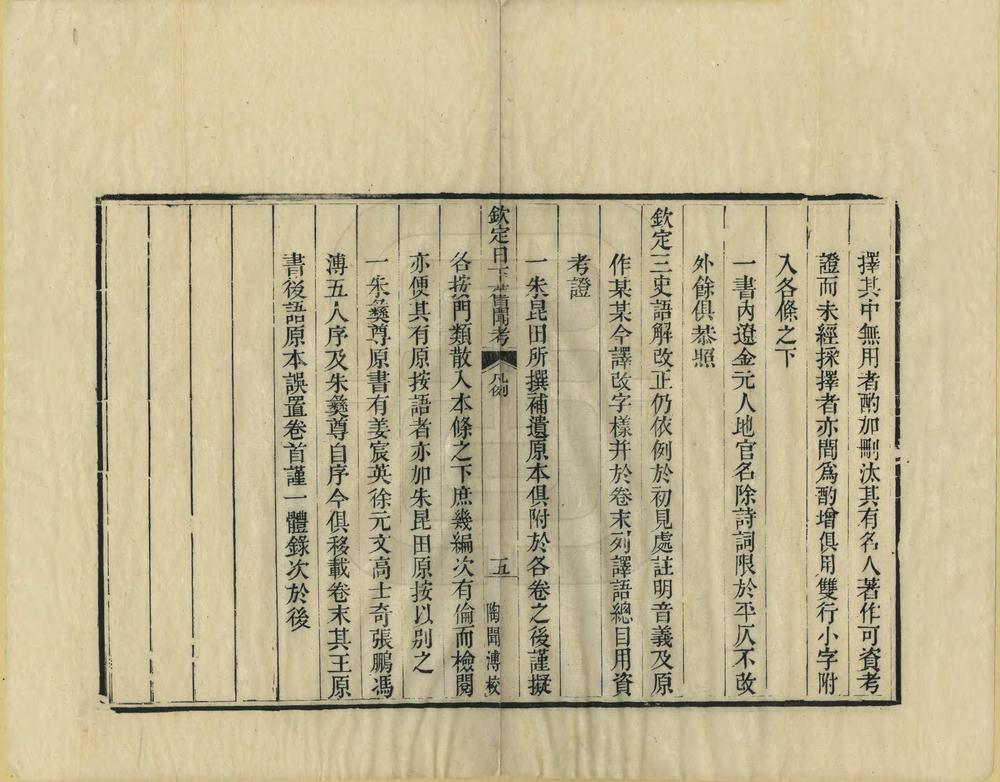 擇其中無用者酌加刪汰其有名人著作可資考
證而未經採擇者亦間爲酌增俱用雙行小字附
入各條之下
一書內遼金元人地官名除詩詞限於平仄不改
外餘俱恭照
欽定三史語解改正仍依例於初見處註明音義及原
作某某今譯改字樣幷於卷末列譯語總目用資
考證
一朱昆田所撰補遺原本俱附於各卷之後謹擬
欽定日下舊聞考 凡例 五 陶聞溥校
各按門類散入本條之下庶幾編次有倫而檢閱
亦便其有原按語者亦加朱昆田原按以別之
一朱彝尊原書有姜宸英徐元文高士奇張鵬馮
溥五人序及朱彝尊自序今俱移載卷末其王原
書後語原本誤置卷首謹一體錄次於後